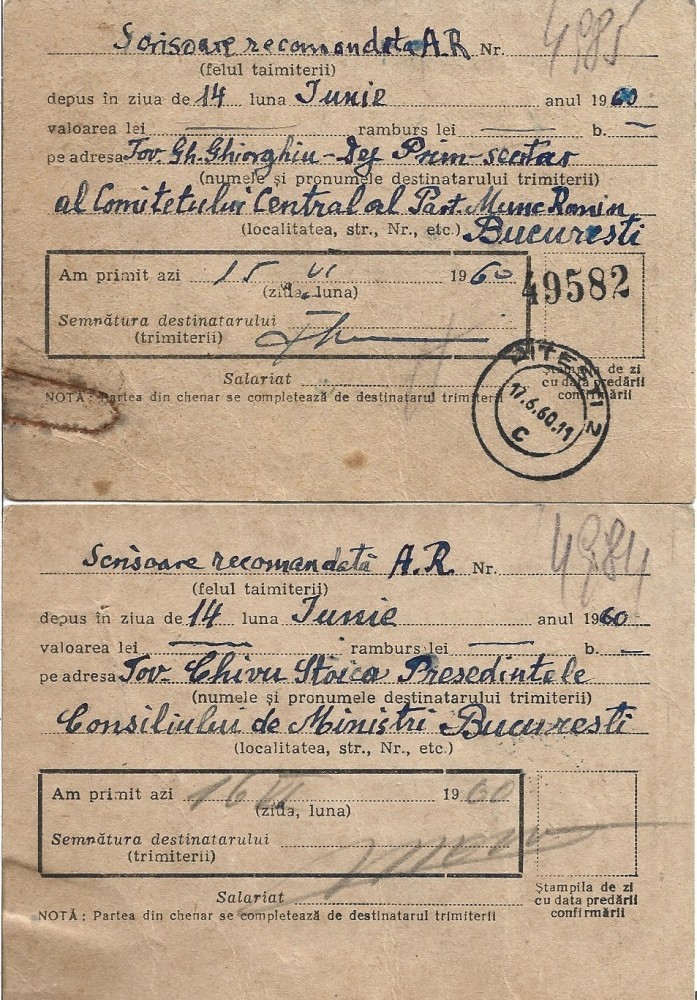 Scrisoare recomandata A.R Nr. 4985
(felul taimiterii)
depus în ziua de 14 luna Iunie anul 1960
valoarea lei — ramburs lei — b. —
pe adresa Tov. Gh. Ghiorghiu-Dej Prim-secretar
(numele și pronumele destinatarului trimiterii)
al Comitetului Central al Part. Munc Romin
(localitatea, str., Nr., etc.) Bucuresti
Am primit azi 15 VI 1960
(ziua, luna)
49582
Semnătura destinatarului
(trimiterii)
PITEȘTI 2
17.6.60.11
C
Salariat
Ștampila de zi
cu data predării
confirmării
NOTĂ: Partea din chenar se completează de destinatarul trimiterii
Scrisoare recomandată A.R. Nr. 4984
(felul taimiterii)
depus în ziua de 14 luna Iunie anul 1960
valoarea lei — ramburs lei — b. —
pe adresa Tov. Chivu Stoica Presedintele
(numele și pronumele destinatarului trimiterii)
Consiliului de Ministri Bucuresti
(localitatea, str., Nr., etc.)
Am primit azi 16 VI 1960
(ziua, luna)
Semnătura destinatarului
(trimiterii)
Salariat
Ștampila de zi
cu data predării
confirmării
NOTĂ: Partea din chenar se completează de destinatarul trimiterii